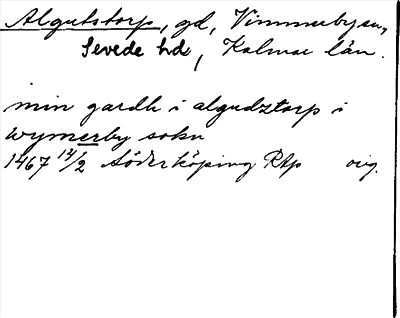 Algutstorp, gd, Vimmerby sn,
Sevede hd, Kalmar län.
min gardh i algudztorp i
wymerby sokn
1467 12/2 Söderköping Rtp orig.